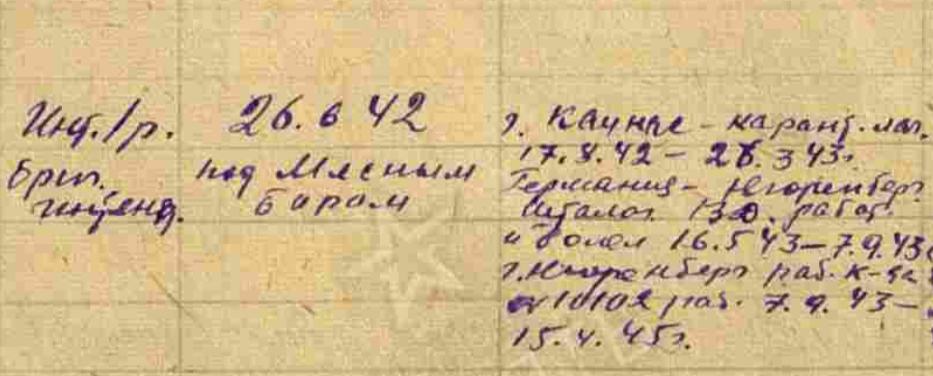 Инт. 1 р.
бриг.
интенд.
26.6 42
под Мясным
Бором
г. Каунас - карант. лаг.
17.8.42 - 28.3 43г.
Германия - Нюренберг
Шталаг 13 D. работ.
и болел 16.5 43 - 7.9.43
г. Нюренберг раб. к-да
10102 раб. 7.9.43 -
15.4.45г.